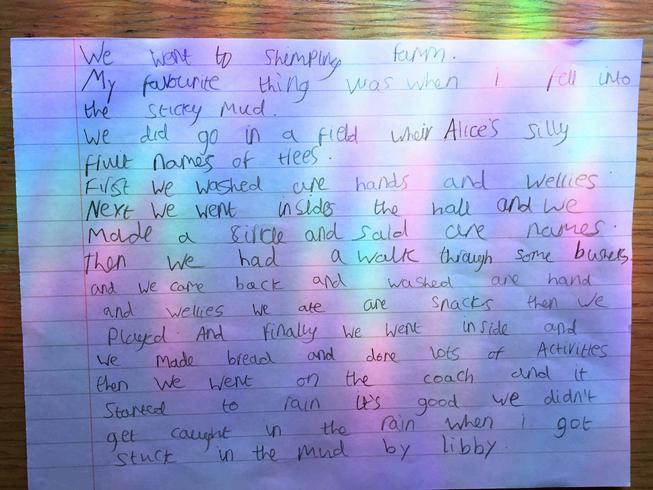 We went to Shimping farm.
My favourite thing was when i fell into
the sticky Mud.
We did go in a field wheir Alice's silly
names of trees.
First we washed are hands and wellies
Next we went insides the hall and we
Made a and said are names.
then we had a walk through some
and we came back and washed are hand
and wellies we ate are snacks then we
Played. And finally we went inside and
we made bread and done lots of Activities
then we went on the coach and it
Started to rain it's good we didn't
get caught in the rain when i got
stuck in the mud by libby.